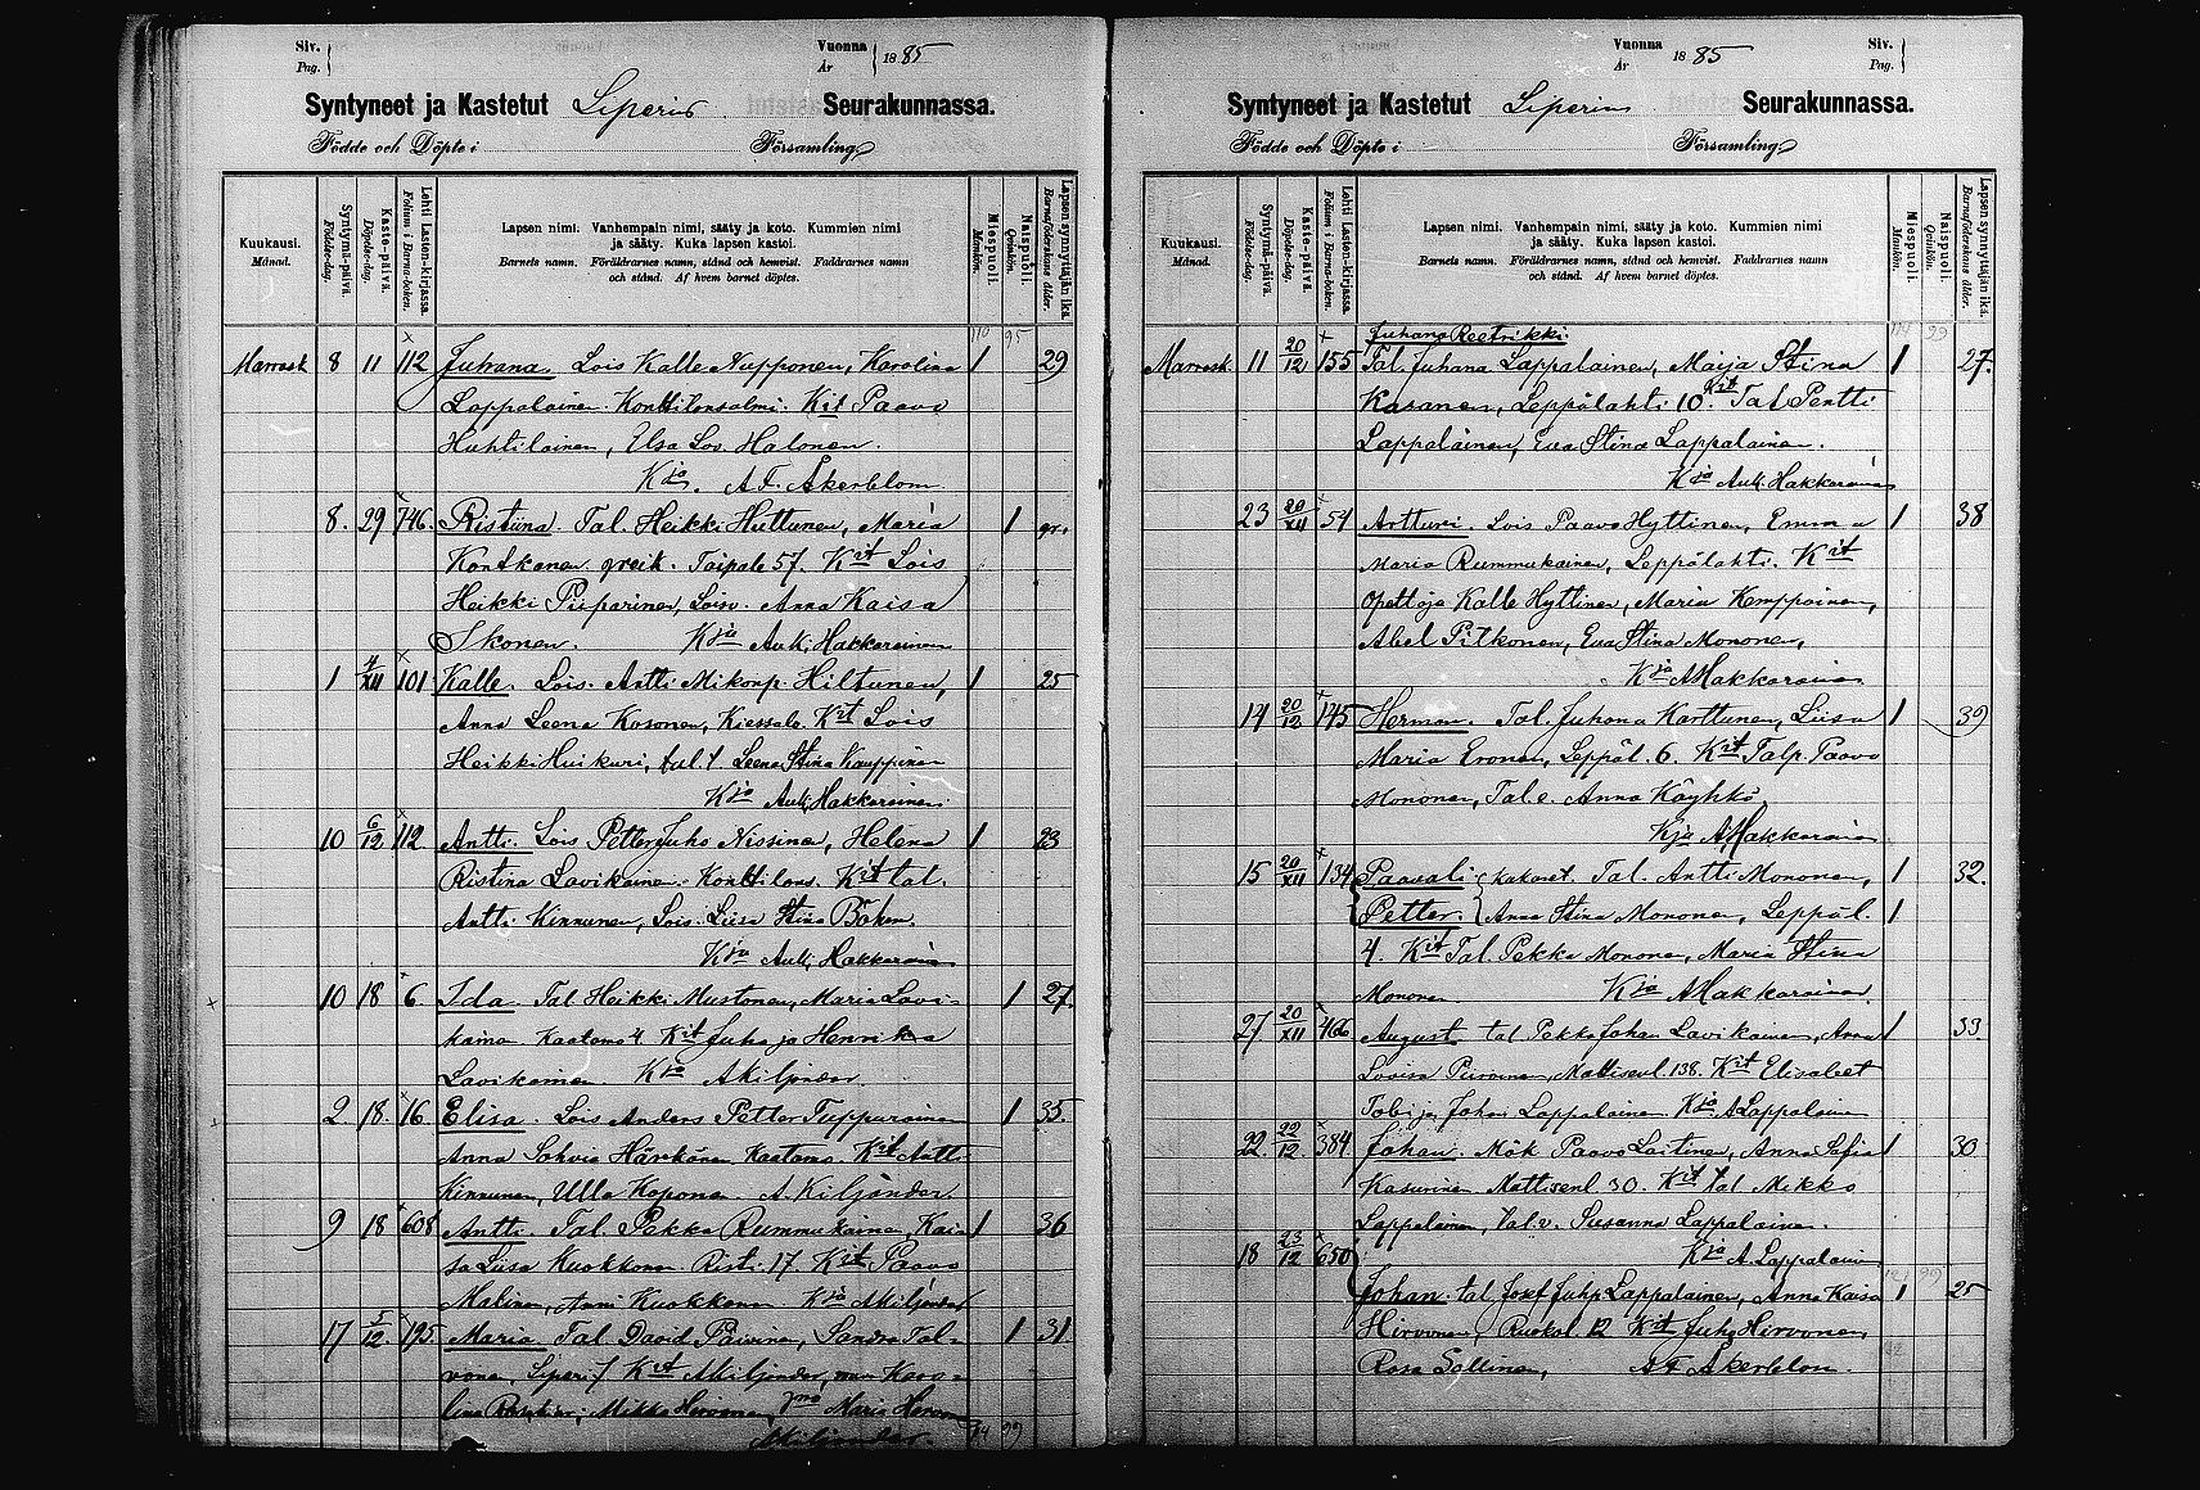 Siv.
Pag.
Vuonna
År
1885
Syntyneet ja Kastetut Liperis Seurakunnassa.
Födde och Döpte i Församling
Kuukausi.
Månad.
Syntymä-päivä.
Födelse-dag.
Kaste-päivä.
Döpelse-dag.
Lehti Lasten-kirjassa.
Folium i Barna-boken.
Lapsen nimi. Vanhempain nimi, sääty ja koto. Kummien nimi
ja sääty. Kuka lapsen kastoi.
Barnets namn. Föräldrarnes namn, stånd och hemvist. Faddrarnes namn
och stånd. Af hvem barnet döptes.
Miespuoli.
Mankön.
Naispuoli.
Qvinkön.
Lapsen synnyttäjän ikä.
Barnaföderskans ålder.
110 95
Marrask 8 11 112 Juhana Lois Kalle Nupponen, Karolina 1 29
Lappalainen. Konttilansalmi. Kit Paavo
Huhtilainen, Elsa Lov. Halonen.
Kja. A F. Åkerblom
8. 29 746. Ristiina. Tal. Heikki Huttunen, Maria 1 gr.
Kontkanen. greik. Taipale 57. Kit Lois
Heikki Piiparinen, Loisv. Anna Kaisa
Ikonen. Kja Auk. Hakkarainen
1 4/XII 101 Kalle. Lois. Antti Mikonp. Hiltunen, 1 25
Anna Leena Kosonen, Kiessalo. Kit Lois
Heikki Huikuri, tal. t. Leena Stina Kauppinen
Kja Auk. Hakkarainen
10 6/12 112. Antti. Lois Petter Juho Nissinen, Helena 1 23
Ristina Lavikainen. Konttilans. Kit tal.
Antti Kinnunen, Lois. Liisa Stina Böhm.
Kja Auk. Hakkarainen
10 18 6. Ida. Tal Heikki Mustonen, Maria Lavi- 1 27.
kainen. Kaatamo 4 Kit Juho ja Henrika
Lavikainen. Kja AKiljander.
2. 18. 16 Elisa. Lois Anders Petter Tuppurainen 1 35.
Anna Sohvia Härkönen. Kaatamo. Kit Antti
Kinnunen, Ulla Kaponen. A. Kiljander.
9 18 608 Antti. Tal. Pekka Rummukainen, Kai- 1 36
sa Liisa Kuokkanen. Risti. 17. Kit Paavo
Malinen, Anni Kuokkanen Kja AKiljander
17 5/12. 195. Maria Tal David Päivinen, Sandra Tol- 1 31
vanen. Liperi 7 Kit AKiljander, Karo-
lina Mikko Hirvonen, Maria Hirvonen
AKiljander.
Siv.
Pag.
Vuonna
År
1885
Syntyneet ja Kastetut Liperin Seurakunnassa.
Födde och Döpte i Församling
Kuukausi.
Månad.
Syntymä-päivä.
Födelse-dag.
Kaste-päivä.
Döpelse-dag.
Lehti Lasten-kirjassa.
Folium i Barna-boken.
Lapsen nimi. Vanhempain nimi, sääty ja koto. Kummien nimi
ja sääty. Kuka lapsen kastoi.
Barnets namn. Föräldrarnes namn, stånd och hemvist. Faddrarnes namn
och stånd. Af hvem barnet döptes.
Miespuoli.
Mankön.
Naispuoli.
Qvinkön.
Lapsen synnyttäjän ikä.
Barnaföderskans ålder.
114 99
Juhana Reetrikki
Marrask. 11 20/12 155 Tal. Juhana Lappalainen, Maija Stina 1 27.
Kasanen, Leppälahti 10. Kit Tal Pertti
Lappalainen, Eva Stina Lappalainen.
Kja Auk. Hakkarainen
23 20/XII 54 Artturi. Lois Paavo Hyttinen, Emma 1 38
Maria Rummukainen, Leppälahti. Kit
Opettaja Kalle Hyttinen, Maria Kemppainen,
Abel Pitkonen, Eva Stina Mononen,
Kja AHakkarainen
14 20/12 145 Herman. Tal. Juhana Karttunen, Liisa 1 39
Maria Eronen, Leppäl. 6. Kit Talp. Paavo
Mononen, Tal. e. Anna Käyhkö
Kja AHakkarainen
15 20/XII 134 Paavali kaksoset. Tal. Antti Mononen, 1 32.
Petter. Anna Stina Mononen, Leppäl. 1
4. Kit Tal. Pekka Mononen, Maria Stina
Mononen Kja AHakkarainen.
27. 20/XII 466 August tal Pekka Johan Lavikainen, Anna 1 33.
Lovisa Piiroinen, Mattisenl. 138. Kit Elisabet
Tobi ja Johan Lappalainen Kja ALappalainen
22. 22/12. 384 Johan. Mök Paavo Laitinen, Anna Sofia 1 30
Kasurinen. Mattisenl 30. Kit tal Mikko
Lappalainen, tal. v. Susanna Lappalainen.
Kja A. Lappalainen
18 23/12 650 Johan tal Josef Juhp. Lappalainen, Anna Kaisa 1 25
Hirvonen, Ruokol. 12 Kit Juho Hirvonen
Rosa Sallinen, AF Åkerblom.